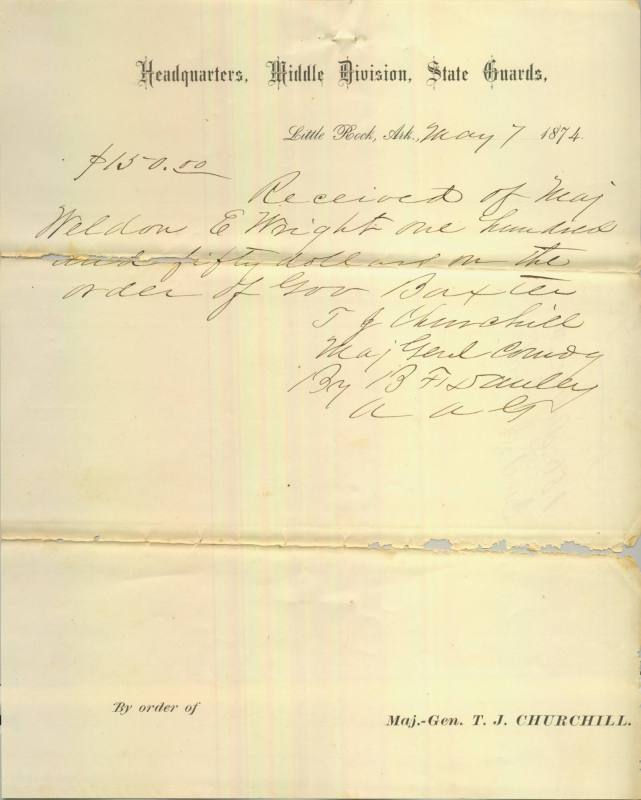 Headquarters, Middle Division, State Guards,
Little Rock, Ark., May 7 1874.
$150.00
Received of Maj
Weldon E Wright one hundred
and fifty dollars on the
order of Gov Baxter
T J Churchill
Maj Genl Comdg
By B F Danley
A A G
By order of
Maj.-Gen. T. J. CHURCHILL.